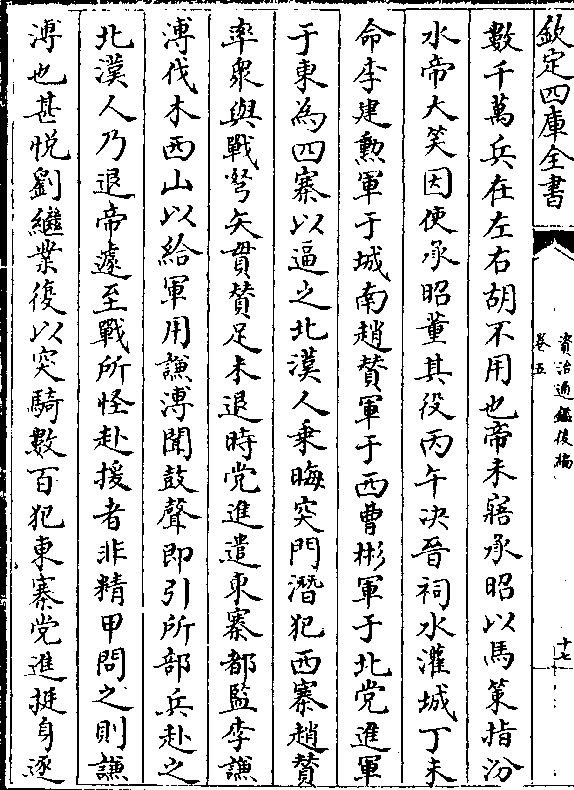 欽定四庫全書
資治通鑑後編
卷五
十七
數千萬兵在左右胡不用也帝未寤承昭以馬策指汾
水帝大笑因使承昭董其役丙午决晉祠水灌城丁未
命李建勲軍于城南趙贊軍于西曹彬軍于北党進軍
于東為四寨以逼之北漢人乗晦突門潛犯西寨趙贊
率衆與戰弩矢貫贊足未退時党進遣東寨都監李謙
溥伐木西山以給軍用謙溥聞鼓聲即引所部兵赴之
北漢人乃退帝遽至戰所怪赴援者非精甲問之則謙
溥也甚悦劉繼業復以突騎數百犯東寨党進挺身逐